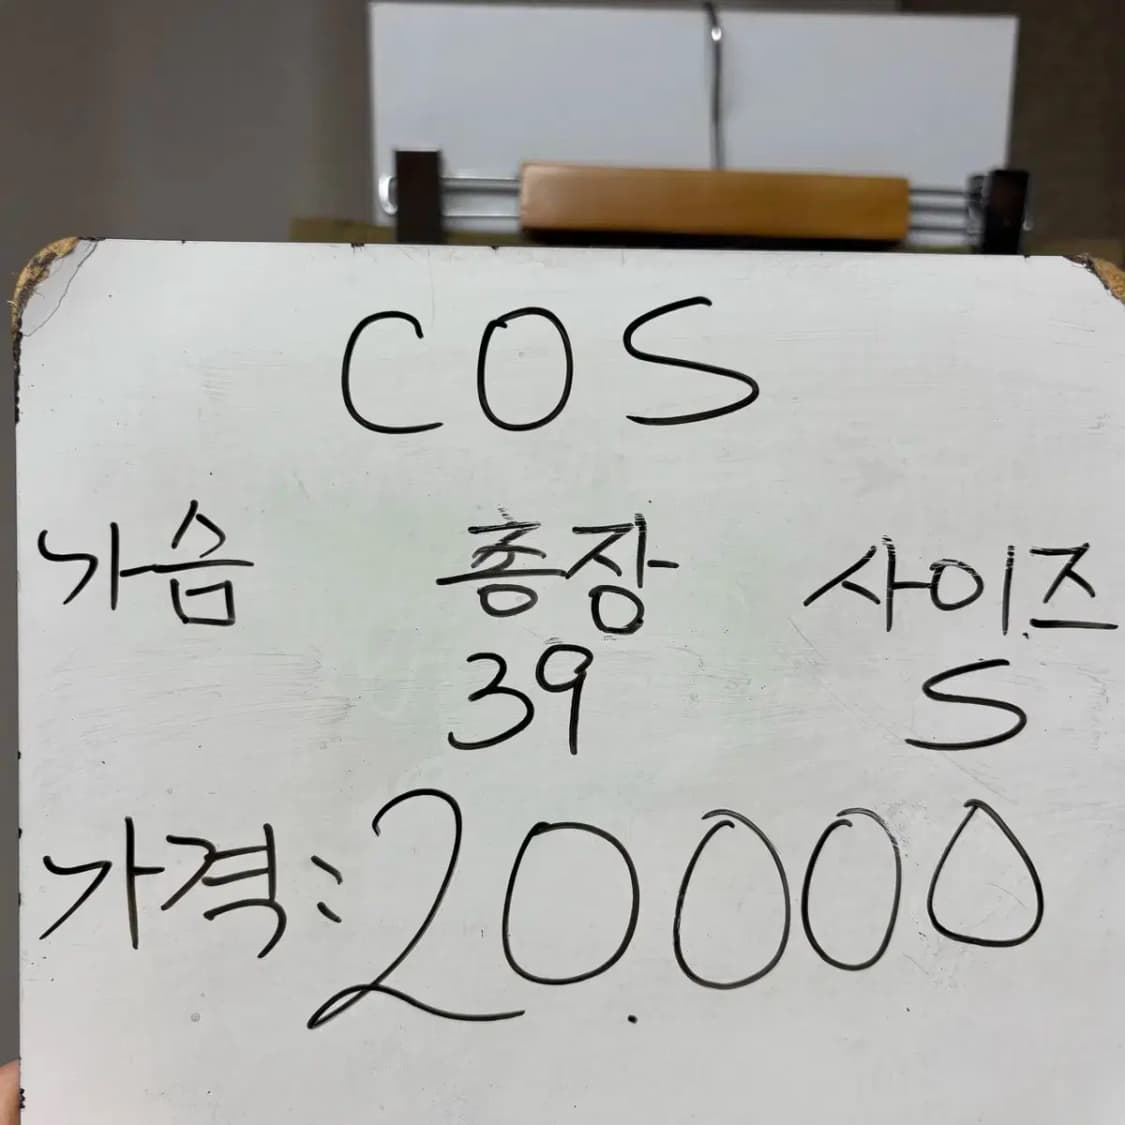 COS
가슴 총장 사이즈
39 S
가격: 20.000